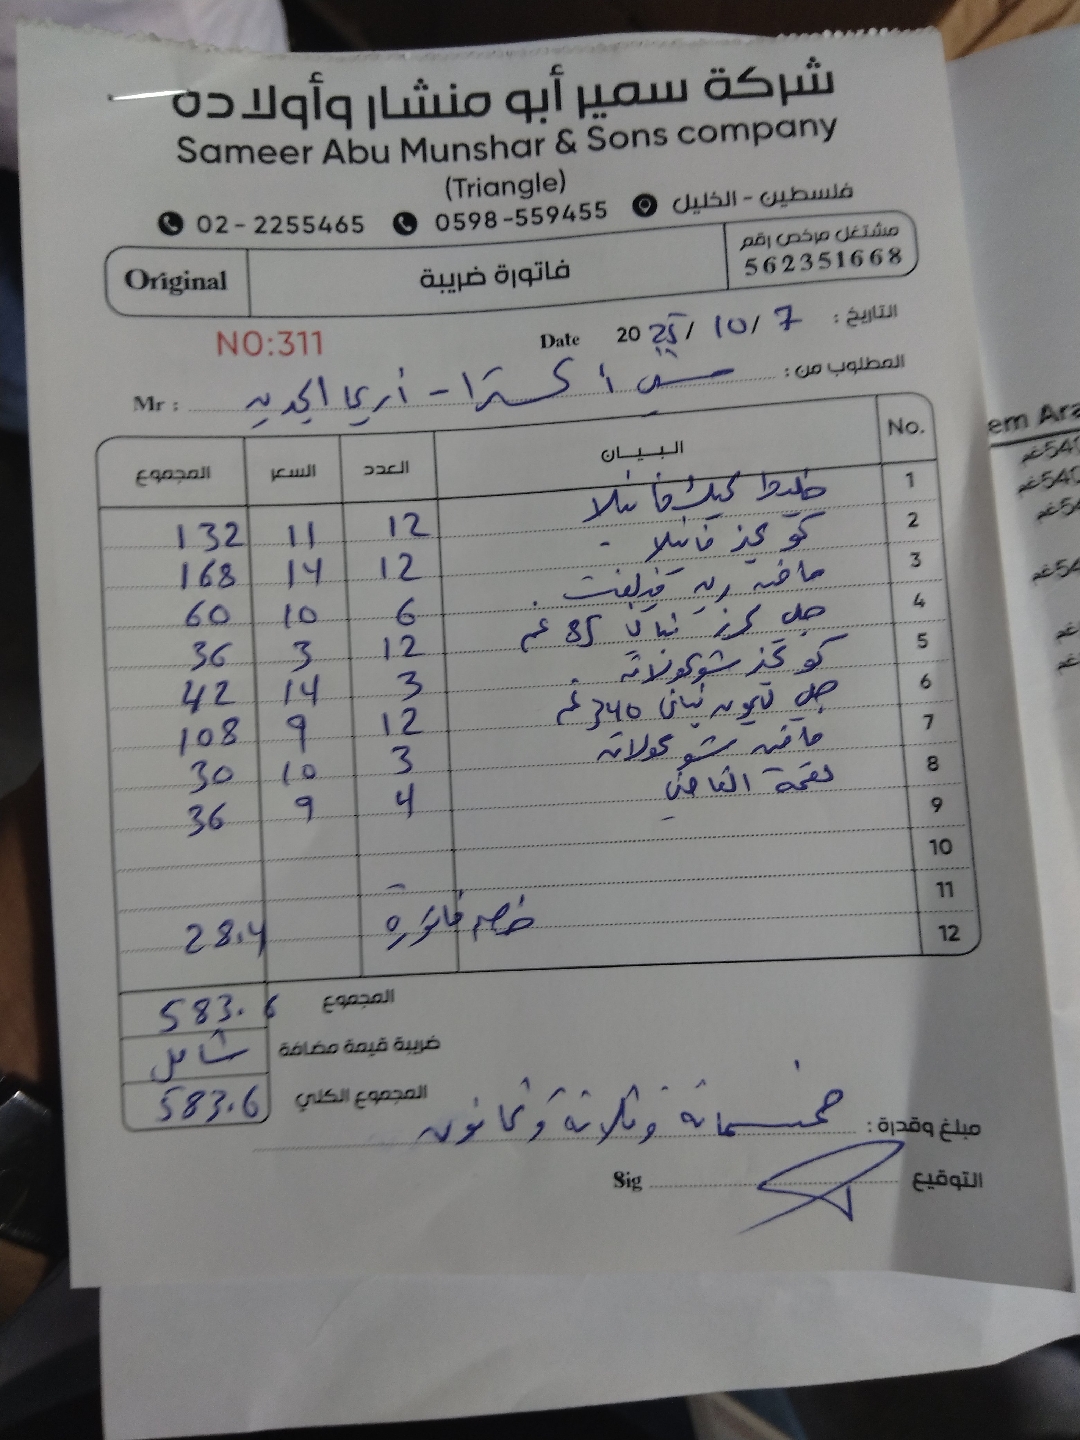 شركة سمير أبو منشار وأولاده
Sameer Abu Munshar & Sons company
(Triangle)
02-2255465 0598-559455 فلسطين - الخليل
Original فاتورة ضريبة مشتغل مرخص رقم 562351668
NO:311 Date 2025/10/7 التاريخ :
Mr : المطلوب من :
No. البيان العدد السعر المجموع
1 خليط كيك فانيلا 12 11 132
2 كوكيز فانيلا 12 14 168
3 مافن ريد فيلفت 6 10 60
4 جل كرز نباتي 85 غم 12 3 36
5 كوكيز شوكولاته 3 14 42
6 جل نباتي 340 غم 12 9 108
7 مافن شوكولاته 3 10 30
8 لقمة القاضي 4 9 36
9
10
11
12 خصم فاتورة 28.4
المجموع 583.6
ضريبة قيمة مضافة شامل
المجموع الكلي 583.6
مبلغ وقدرة : خمسمائة وثلاثة وثمانون
التوقيع Sig
em Ara